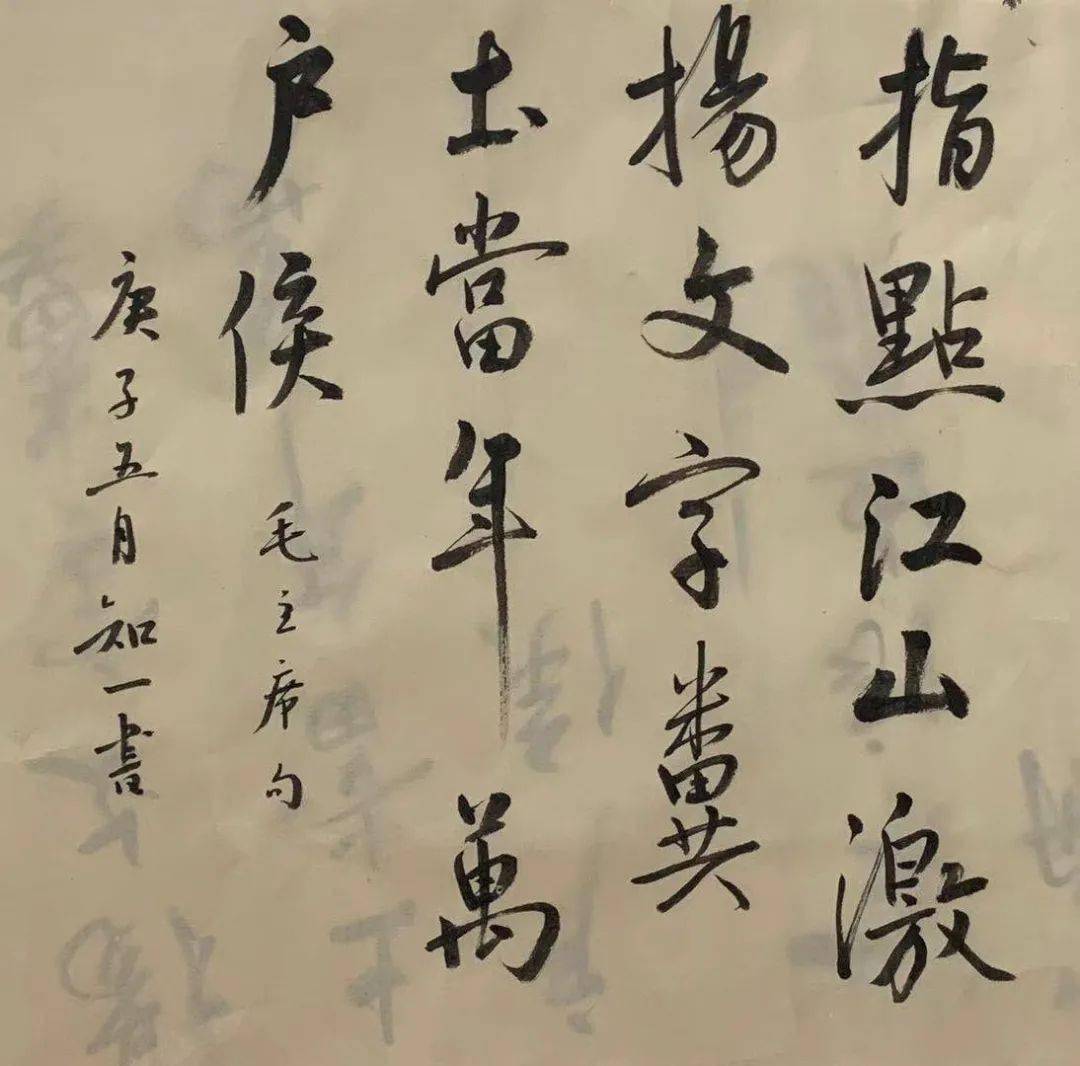 指點江山激
揚文字糞
土當年萬
户侯 毛主席句
庚子五月知一書